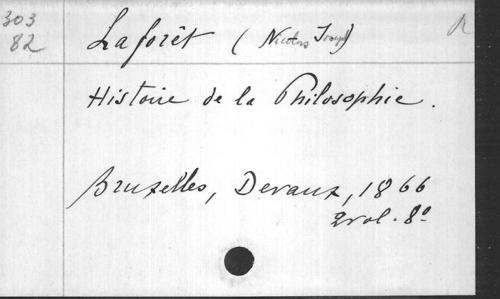 303
82
Laforêt (Nicolas Joseph)
R
Histoire de la Philosophie.
Bruxelles, Devaux, 1866
2 vol. 8º